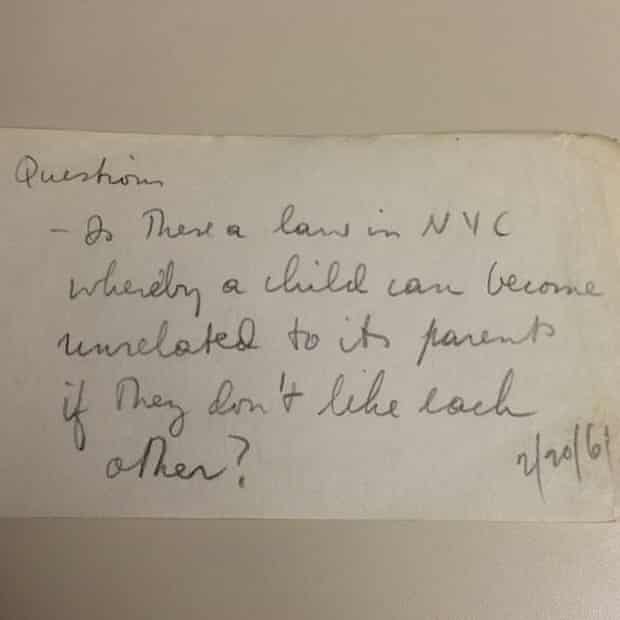 Questions
- Is there a law in NYC
whereby a child can become
unrelated to its parents
if they don't like each
other?
2/20/61